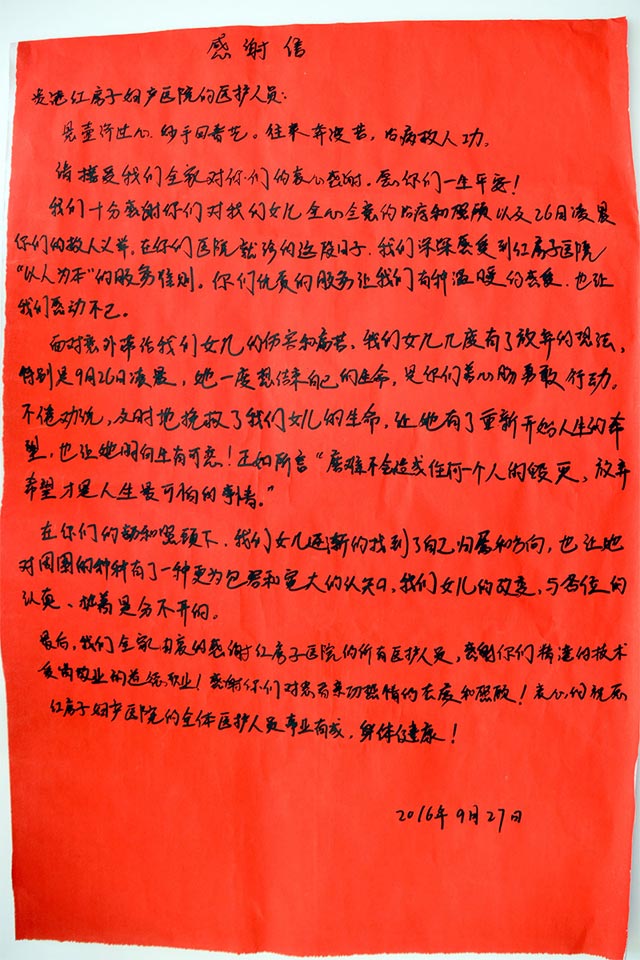 感谢信
贵港红房子妇产医院的医护人员:
悬壶济过心,妙手回春艺。往来奔波苦,治病救人功。
请接受我们全家对你们的衷心感谢。愿你们一生平安!
我们十分感谢你们对我们女儿全心全意的治疗和照顾以及26日凌晨
你们的救人义举。在你们医院就诊的这段日子,我们深深感受到红房子医院
“以人为本”的服务准则。你们优质的服务让我们有种温暖的感受,也让
我们感动不已。
面对意外带给我们女儿的伤害和病苦,我们女儿几度有了放弃的想法,
特别是9月26日凌晨,她一度想结束自己的生命,是你们善心肠勇敢行动。
不倦劝说,及时地挽救了我们女儿的生命,让她有了重新开始人生的希
望,也让她明白生有可恋!正如所言“磨难不会造成任何一个人的毁灭,放弃
希望才是人生最可怕的事情。”
在你们的帮和照顾下,我们女儿逐渐的找到了自己归属和方向,也让她
对周围的种种有了一种更为包容和宽大的认知,我们女儿的改变,与各位的
认真、是分不开的。
最后,我们全家由衷的感谢红房子医院的所有医护人员,感谢你们精湛的技术
敬业的道德!感谢你们对患者亲切热情的态度和照顾!衷心的祝愿
红房子妇产医院的全体医护人员事业有成,身体健康!
2016年9月27日